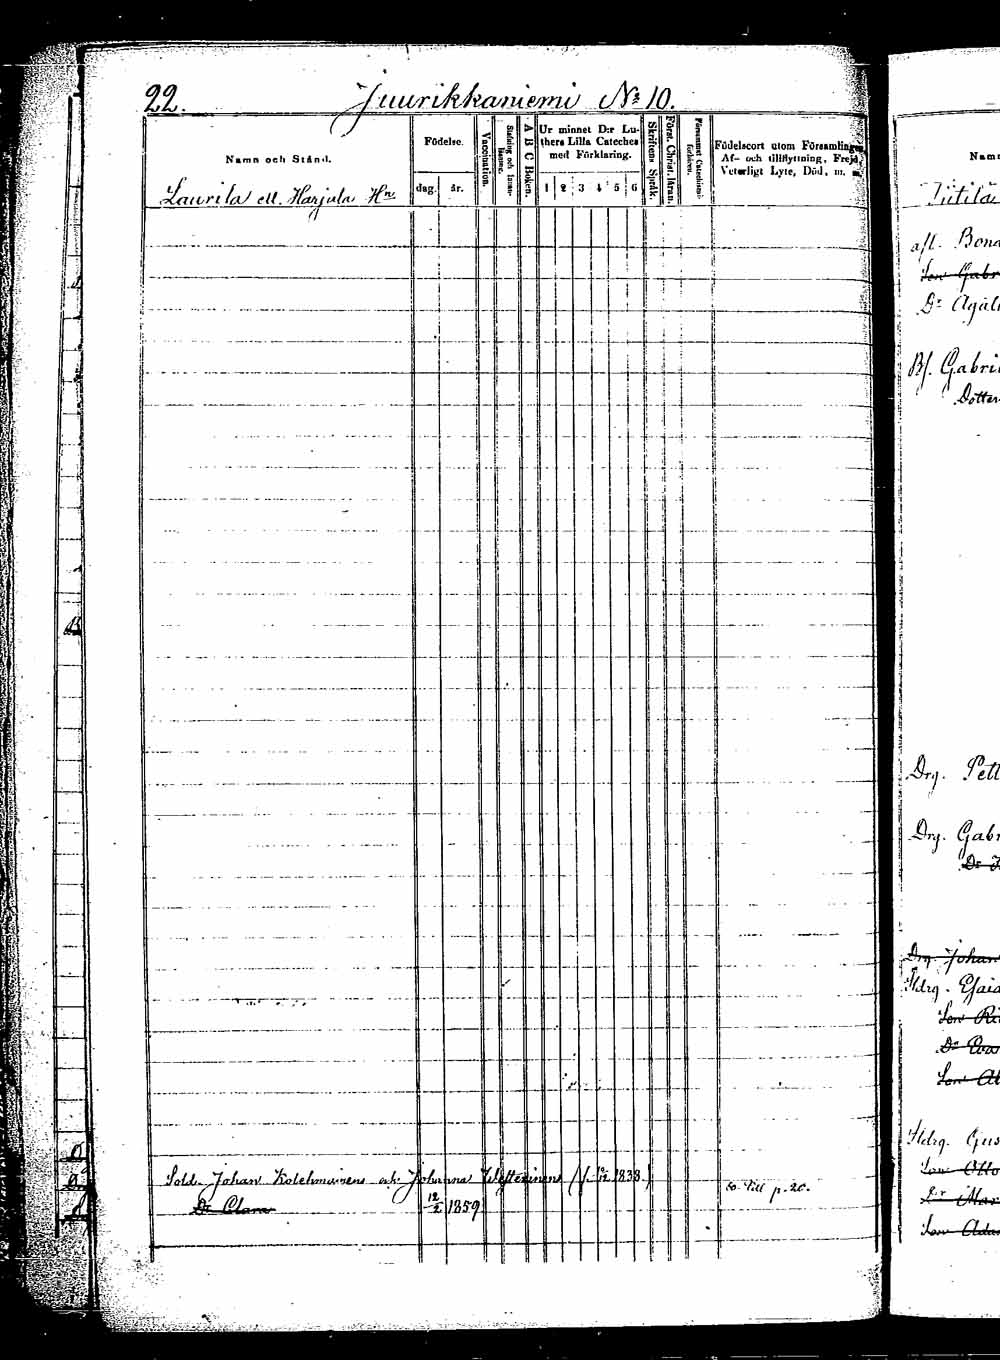 22.
Juurikkaniemi № 10.
Namn och Stånd.
Födelse.
dag.
år.
Vaccination.
A B C Boken.
Ur minnet D:r Lu-
thers Lilla Cateches
med Förklaring.
1 2 3 4 5 6
Skriftens Språk.
Först. Christ. läran.
Födelseort utom Församlingen
Af- och tillflyttning, Frejd,
Veterligt Lyte, Död, m. m.
Laurila ell. Harjula Hn.
Sold. Johan Kolehmainens och Johanna
1838
Dr Clara 12/2 1859
till p. 20.
Nam
Iitilä
afl. Bona
Son Gabri
Dr Agat
Bf. Gabri
Dotter
Drg. Pett
Drg. Gabr
Drg. Johan
Fldrg. Esaia
Son
Dr Eva
Son
Fldrg. Gus
Son Otto
Mar
Son Adam